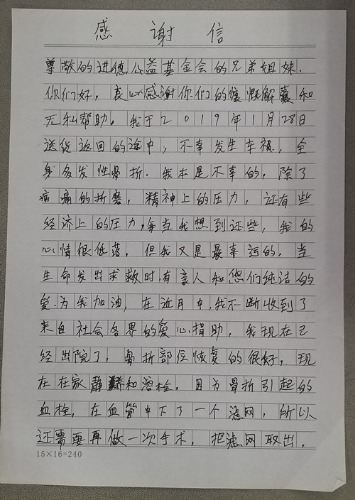 感谢信
尊敬的进德公益基金会的兄弟姐妹.
你们好,衷心感谢你们的慷慨解囊和
无私帮助。我于2019年1月28日
送货返回的途中,不幸发生车祸,全
身多发性骨折。我本是不幸的,除了
病痛的折磨,精神上的压力,还有些
经济上的压力,每当我想到这些,我的
心情很低落,但我又是最幸运的,当
生命发出求救时有亲人和您们纯洁的
爱为我加油,在近月中,我不断收到了
来自社会各界的爱心捐助,我现在已
经出院了,骨折部位恢复的很好,现
在在家静养和溶栓,因为骨折引起的
血栓,在血管中下了一个滤网,所以
还需要再做一次手术,把滤网取出.
15×16=240